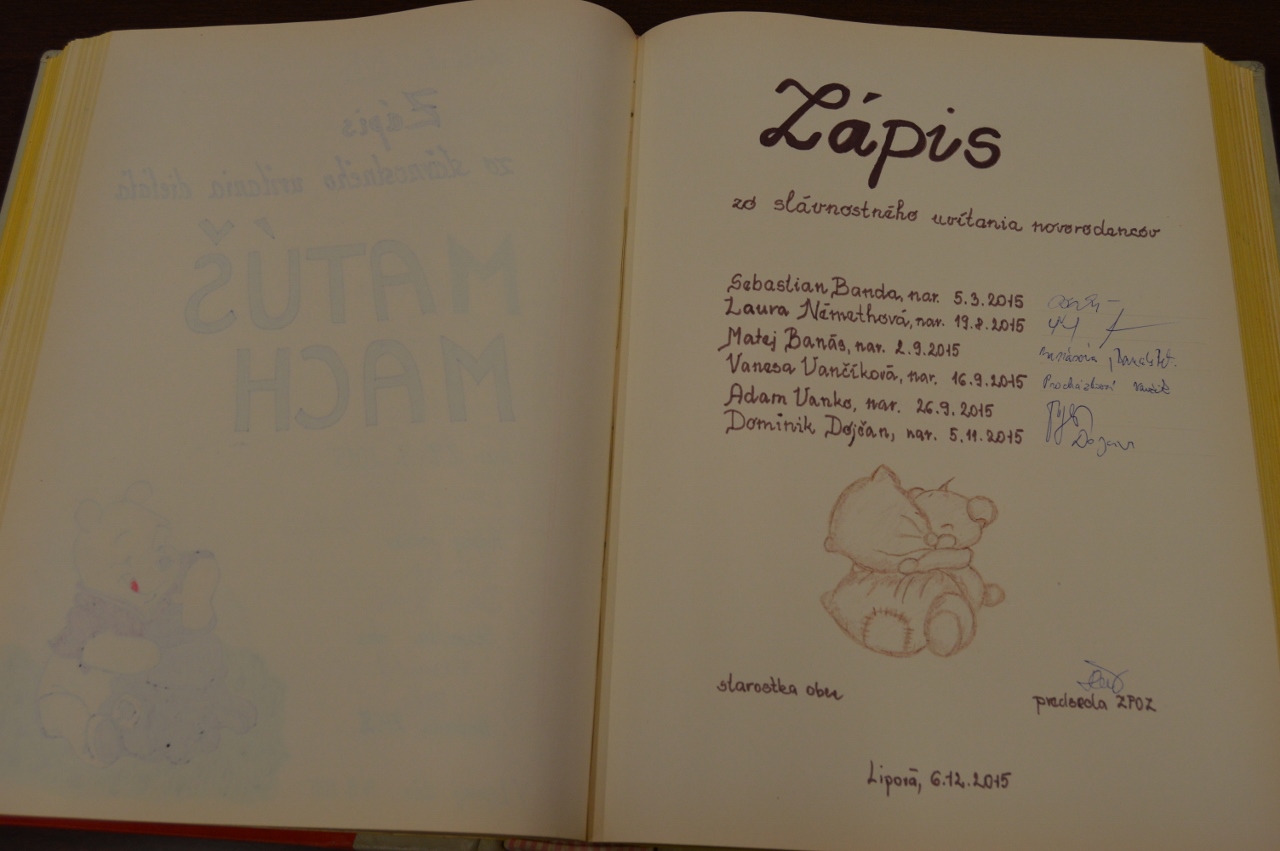 Zápis
zo slávnostného uvítania dieťaťa
MATÚŠ
MACH
Zápis
zo slávnostného uvítania novorodencov
Sebastian Banda, nar. 5.3.2015
Laura Némethová, nar. 19.8.2015
Matej Banás, nar. 2.9.2015
Vanesa Vančíková, nar. 16.9.2015
Adam Vanko, nar. 26.9.2015
Dominik Dojčan, nar. 5.11.2015
starostka obce
predseda ZPOZ
Lipová, 6.12.2015